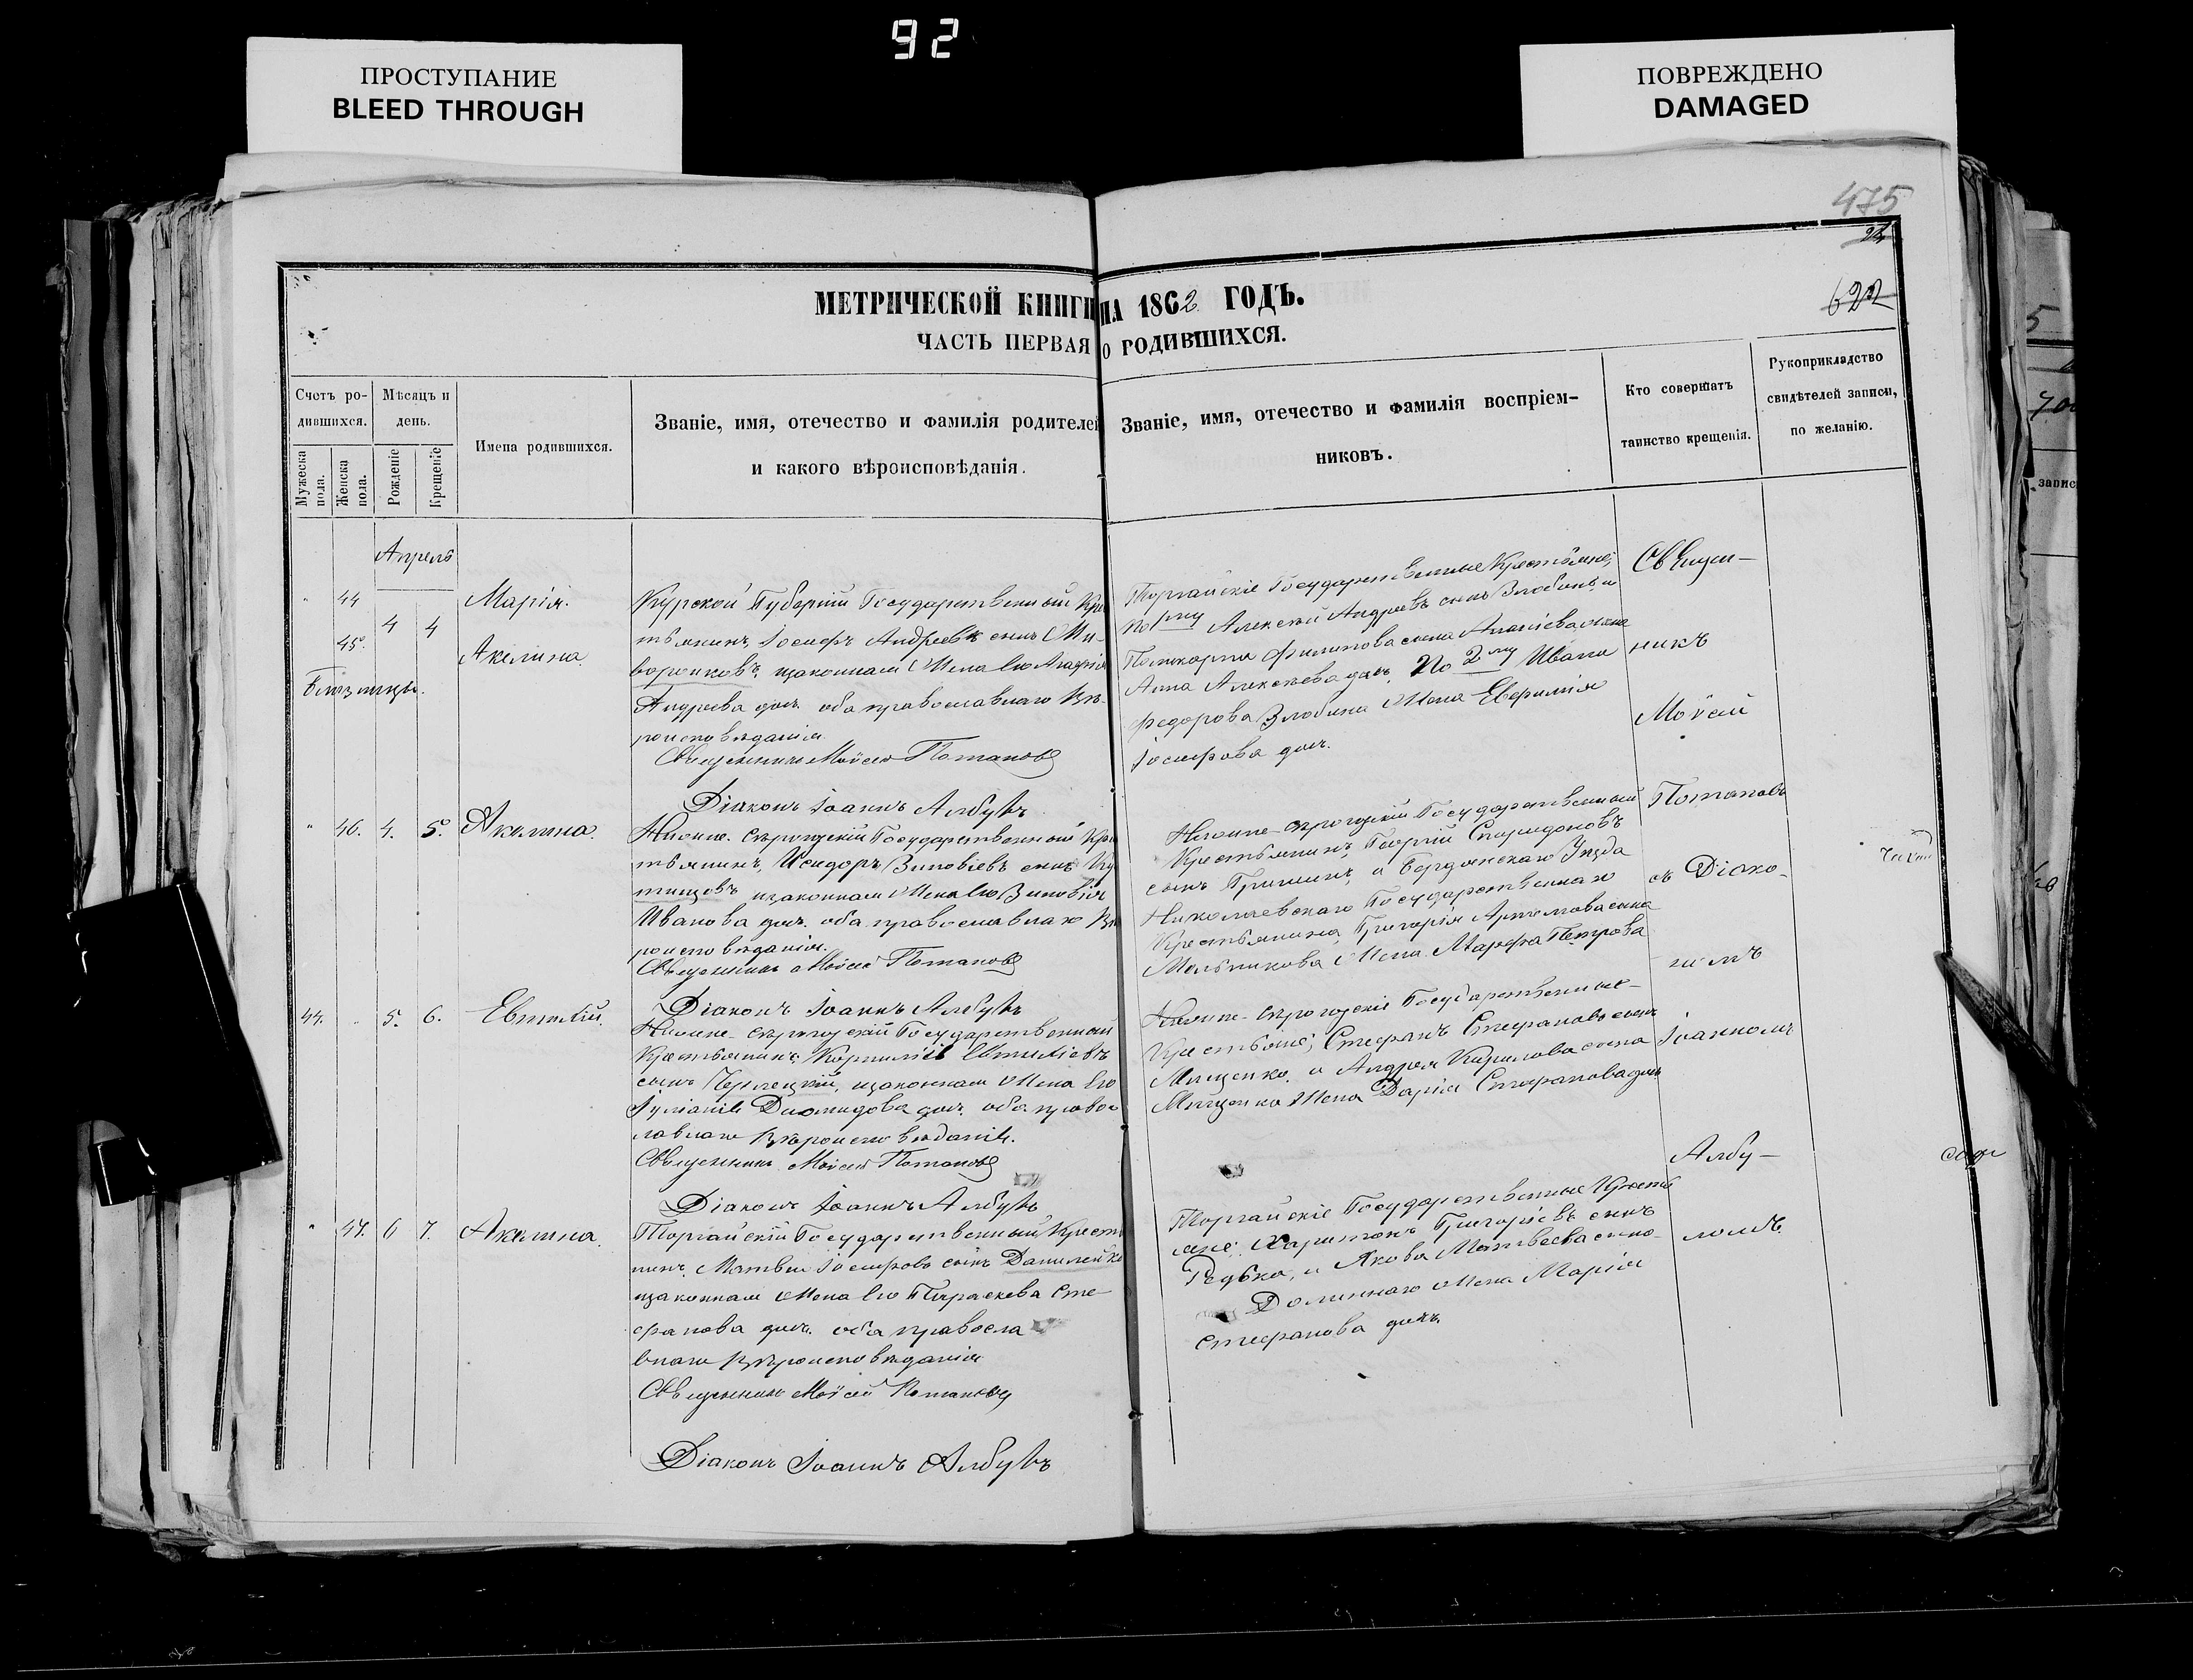 92
ПРОСТУПАНИЕ
BLEED THROUGH
ПОВРЕЖДЕНО
DAMAGED
475
24
622
МЕТРИЧЕСКОЙ КНИГИ НА 1862 ГОДЪ.
ЧАСТЬ ПЕРВАЯ О РОДИВШИХСЯ.
Счетъ ро-
дившихся.
Мужеска пола.
Женска пола.
Мѣсяцъ и
день.
Рожденіе
Крещеніе
Имена родившихся.
Званіе, имя, отечество и фамилія родителей
и какого вѣроисповѣданія.
Званіе, имя, отечество и фамилія воспріем-
никовъ.
Кто совершатъ
таинство крещенія.
Рукоприкладство
свидѣтелей записи,
по желанію.
Апрель
44
45
Близницы.
4 4
Марія.
Акилина
Курской Губерніи Государственный Крес
тьянинъ, Іосифъ Андреевъ сынъ
законная Жена Его
Андреева доч. оба православнаго Вѣ-
роисповѣданія
Священникъ Моисей Потаповъ
Діаконъ Іоаннъ Албулъ
Торгайскіе Государственные Крестьяне;
По 1му Алексѣй Андреевъ сынъ Злобинъ, и
Поликарпа Филипова сына жена
Анна Алексѣева доч. По 2му Ивана
Федорова Злобина Жена Евфимія
Іосифова доч.
46. 4. 5. Акилина.
Нижне-Сѣрогозскій Государственный Кре
тьянинъ, Исидоръ Зиновіевъ сынъ
законная Жена Его Зиновія
Иванова доч. оба православнаго Вѣ
роисповѣданія.
Священникъ Моисей Потаповъ
Діаконъ Іоаннъ Албулъ
Нижне-Сѣрогозскій Государственный
Крестьянинъ, Георгій Спиридоновъ
сынъ Гришинъ, и Бердянскаго Уѣзда
Николаевскаго Государственнаго
Крестьянина, Григорія Артемова сына
Мельникова Жена Марфа Петрова
44. 5. 6. Евтихій.
Нижне-Сѣрогозскій Государственный
Крестьянинъ, Корнилій Евтихіевъ
сынъ законная Жена Его
Іуліанія Диомидова доч. оба право
лавнаго Вѣроисповѣданія.
Священникъ Моисей Потаповъ
Діаконъ Іоаннъ Албулъ
Нижне-Сѣрогозскіе Государственные
Крестьяне; Стефанъ Стефановъ сынъ
Мищенко, и Андрея Кирилова сына
Мищенко Жена Дарія Стефанова доч.
47. 6 7. Акилина.
Торгайскій Государственный Крестя
нинъ, Матвей Іосифовъ сынъ Данилейко
законная Жена Его Параскева Сте-
фанова доч. оба правосла
внаго Вѣроисповѣданія
Священникъ Моисей Потаповъ
Діаконъ Іоаннъ Албулъ
Торгайскіе Государственные Кресть
яне; Харитонъ Григоріевъ сынъ
Редька, и Якова Матвеева сына
Жена Марія
Стефанова доч.
Священ-
никъ
Моисей
Потаповъ
съ Діако-
номъ
Іоанномъ
Албу-
ломъ.